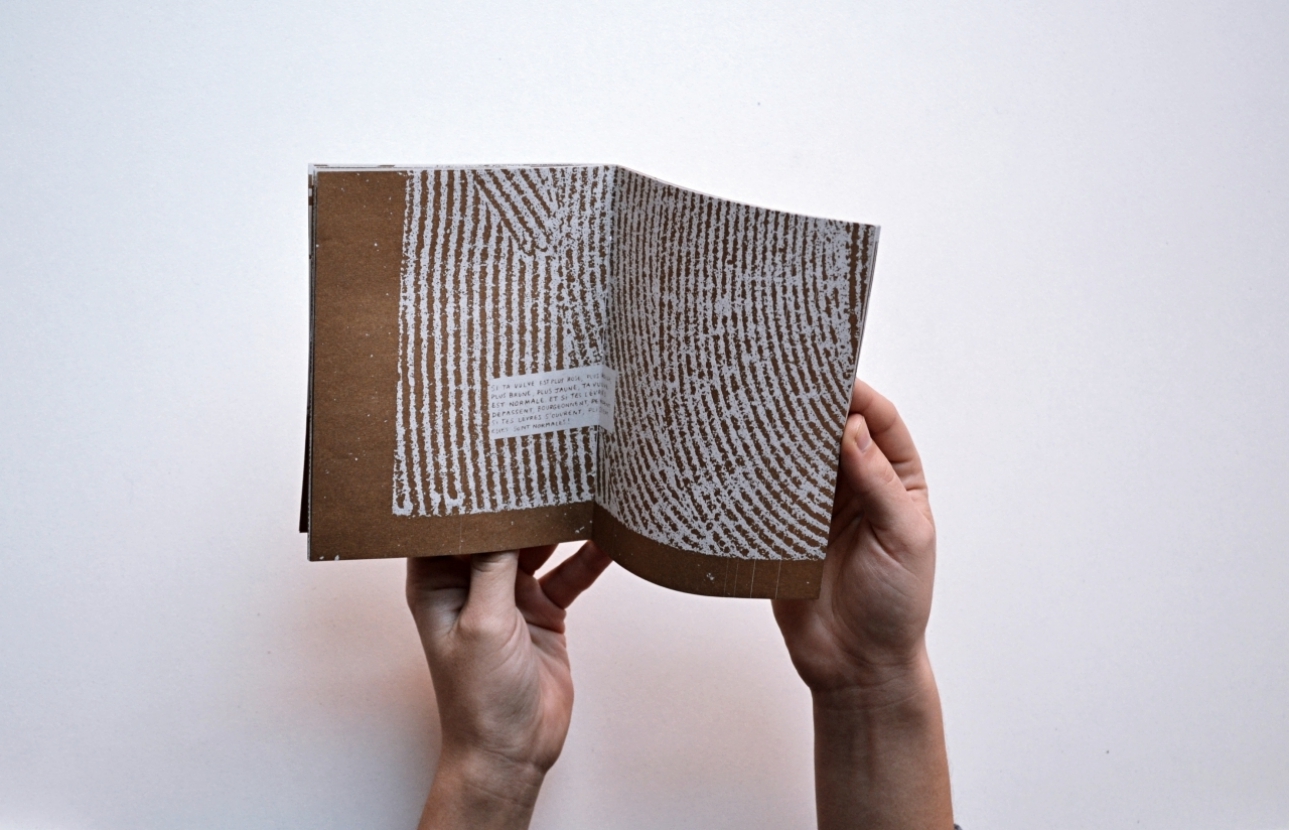 SI TA VULVE EST PLUS ROSE, PLUS
PLUS BRUNE, PLUS JAUNE, TA VULVE
EST NORMALE. ET SI TES LÈVRES
DÉPASSENT, BOURGEONNENT,
SI TES LÈVRES S'OUVRENT,
SONT NORMALES!